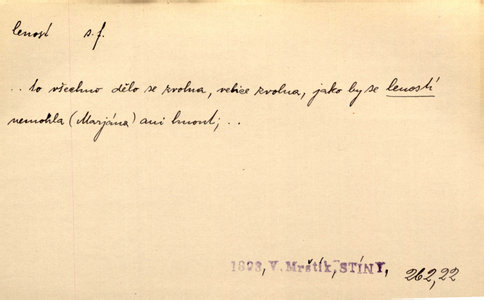 lenost s. f.
.. to všechno dělo se zvolna, velice zvolna, jako by se leností
nemohla (Marjána) ani hnout; ..
1893, V. Mrštík, STÍNY, 262,22